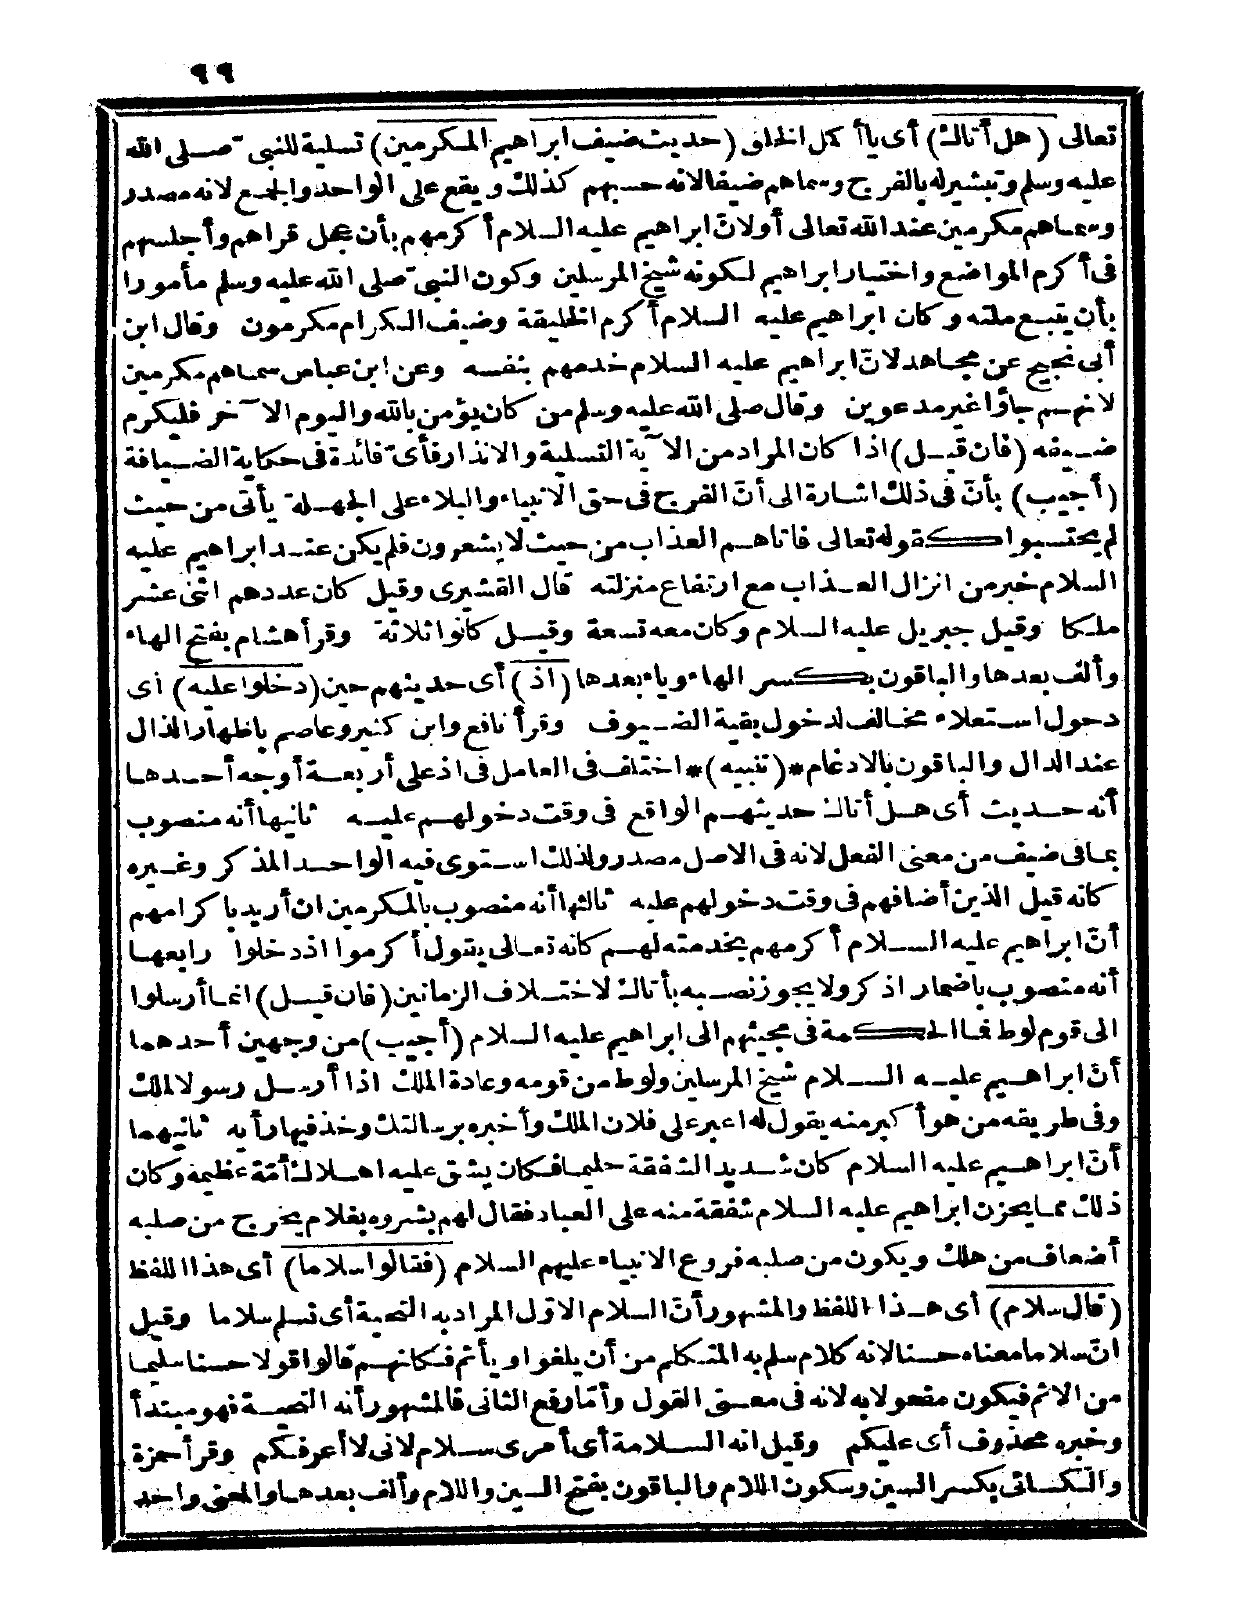 ٩٩
تعالى (هل أتاك) أى يا أكمل الخلق (حديث ضيف ابراهيم المكرمين) تسلية للنبى صلى الله
عليه وسلم وتبشير له بالفرج وسماهم ضيفا لانه حسبهم كذلك ويقع على الواحد والجمع لانه مصدر
وسماهم مكرمين عند الله تعالى أولان ابراهيم عليه السلام أكرمهم بأن عجل قراهم وأجلسهم
فى أكرم المواضع واختيار ابراهيم لكونه شيخ المرسلين وكون النبىّ صلى الله عليه وسلم مأمورا
بأن يتبع ملته وكان ابراهيم عليه السلام أكرم الخليقة وضيف الكرام مكرمون وقال ابن
أبى نجيح عن مجاهد لانّ ابراهيم عليه السلام خدمهم بنفسه وعن ابن عباس سماهم مكرمين
لانهم جاؤا غير مدعوين وقال صلى الله عليه وسلم من كان يؤمن بالله واليوم الآخر فليكرم
ضيفه (فان قيل) اذا كان المراد من الآية التسلية والانذار فأىّ فائدة فى حكاية الضيافة
(أجيب) بأنّ فى ذلك اشارة الى أنّ الفرج فى حق الانبياء والبلاء على الجهلة يأتى من حيث
لم يحتسبوا كقوله تعالى فاتاهم العذاب من حيث لا يشعرون فلم يكن عند ابراهيم عليه
السلام خبر من انزال العذاب مع ارتفاع منزلته قال القشيرى وقيل كان عددهم اثنى عشر
ملكا وقيل جبريل عليه السلام وكان معه تسعة وقيل كانوا ثلاثة وقرأ هشام بفتح الهاء
وألف بعدها والباقون بكسر الهاء وياء بعدها (اذ) أى حديثهم حين (دخلوا عليه) أى
دخول استعلاء مخالف لدخول بقية الضيوف وقرأ نافع وابن كثير وعاصم باظهار الذال
عند الدال والباقون بالادغام *(تنبيه)* اختلف فى العامل فى اذ على أربعة أوجه أحدها
أنه حديث أى هل أتاك حديثهم الواقع فى وقت دخولهم عليه ثانيها أنه منصوب
بما فى ضيف من معنى الفعل لانه فى الاصل مصدر ولذلك استوى فيه الواحد المذكر وغيره
كانه قيل الذين أضافهم فى وقت دخولهم عليه ثالثها أنه منصوب بالمكرمين ان أريد باكرامهم
أنّ ابراهيم عليه السلام أكرمهم بخدمته لهم كانه تعالى يقول أكرموا اذ دخلوا رابعها
أنه منصوب باضمار اذكر ولا يجوز نصبه بأتاك لاختلاف الزمانين (فان قيل) انما أرسلوا
الى قوم لوط فما الحكمة فى مجيئهم الى ابراهيم عليه السلام (أجيب) من وجهين أحدهما
أنّ ابراهيم عليه السلام شيخ المرسلين ولوط من قومه وعادة الملك اذا أرسل رسولا لملك
وفى طريقه من هو أكبر منه يقول له اعبر على فلان الملك وأخبره برسالتك وخذ فيها رأيه ثانيهما
أنّ ابراهيم عليه السلام كان شديد الشفقة حليما فكان يشق عليه اهلاك أمّة عظيمة وكان
ذلك مما يحزن ابراهيم عليه السلام شفقة منه على العباد فقال لهم بشروه بغلام يخرج من صلبه
أضعاف من هلك ويكون من صلبه فروع الانبياء عليهم السلام (فقالوا سلاما) أى هذا اللفظ
(قال سلام) أى هذا اللفظ والمشهور أنّ السلام الاوّل المراد به التحية أى نسلم سلاما وقيل
انّ سلاما معناه حسنا لانه كلام سلم به المتكلم من أن يلغو او يأثم فكانهم قالوا قولا حسنا سليما
من الاثم فيكون مفعولا به لانه فى معنى القول وأمّا رفع الثانى فالمشهور أنه التحية فهو مبتدأ
وخبره محذوف أى عليكم وقيل انه السلامة أى أمرى سلام لانى لا أعرفكم وقرأ حمزة
والكسائى بكسر السين وسكون اللام والباقون بفتح السين واللام وألف بعدها والمعنى واحد